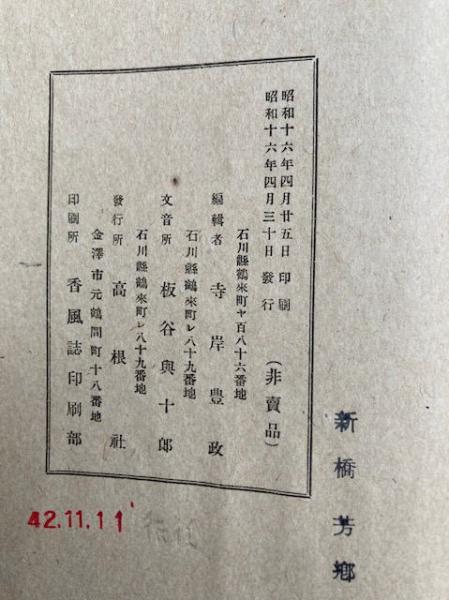 新橋芳郷
昭和十六年四月廿五日印刷
昭和十六年四月三十日發行
(非賣品)
石川縣鶴來町ヤ百八十六番地
編輯者 寺岸豊政
石川縣鶴來町レ八十九番地
文音所 板谷與十郎
石川縣鶴來町レ八十九番地
發行所 高根社
金澤市元鶴間町十八番地
印刷所 香風誌印刷部
42.11.11